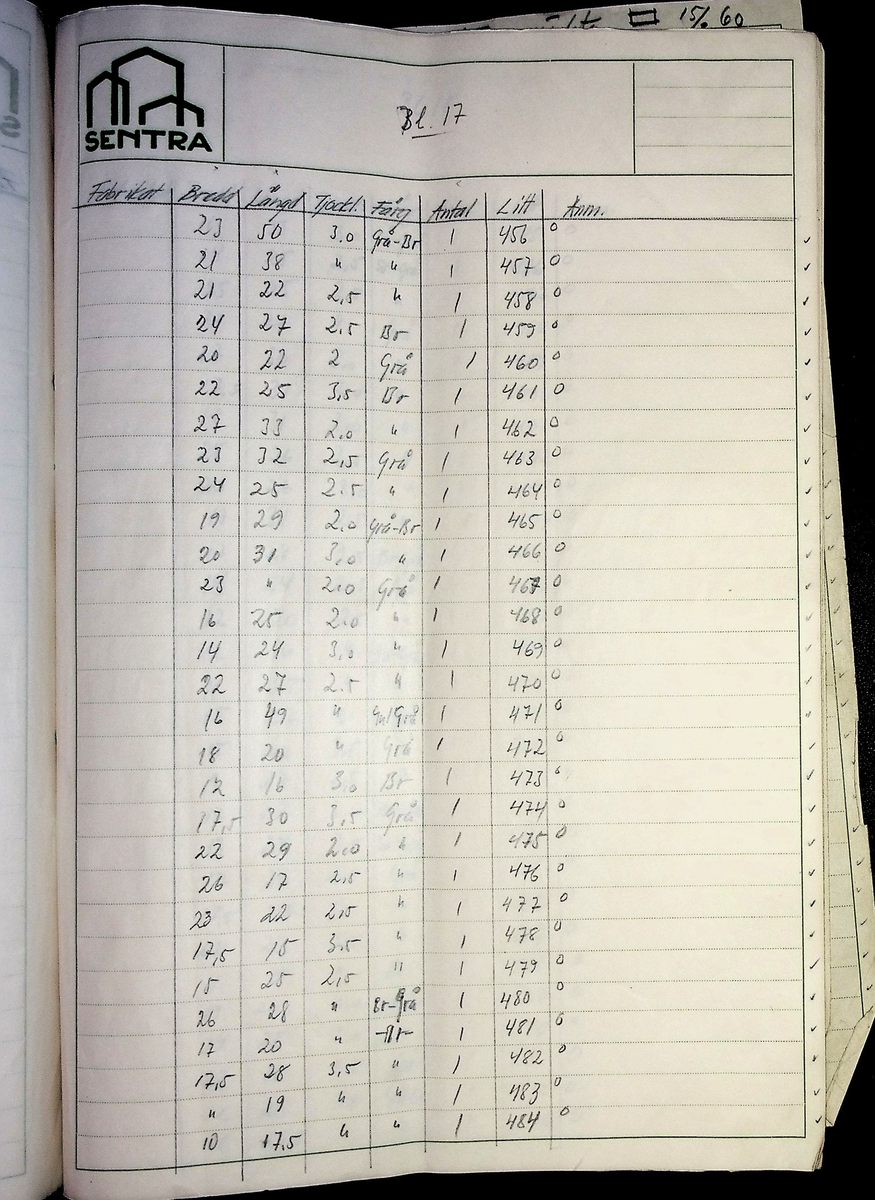 15/. 60
SENTRA
Bl. 17
Fabrikat Bredd Längd Tjockl. Färg Antal Litt Anm.
23 50 3,0 Grå-Br 1 456 o
21 38 " " 1 457 o
21 22 2,5 " 1 458 o
24 27 2.5 Br 1 459 o
20 22 2 Grå 1 460 o
22 25 3,5 Br 1 461 o
27 33 2.0 " 1 462 o
23 32 2,5 Grå 1 463 o
24 25 2.5 " 1 464 o
19 29 2.0 Grå-Br 1 465 o
20 31 3,0 " 1 466 o
23 " 2.0 Grå 1 467 o
16 25 2.0 " 1 468 o
14 24 3,0 " 1 469 o
22 27 2.5 " 1 470 o
16 49 " Gul Grå 1 471 o
18 20 " Grå 1 472 o
12 16 3,0 Br 1 473 o
17,5 30 3,5 Grå 1 474 o
22 29 2.0 " 1 475 o
26 17 2,5 " 1 476 o
23 22 2,5 " 1 477 o
17,5 15 3,5 " 1 478 o
15 25 2,5 " 1 479 o
26 28 " Br-Grå 1 480 o
17 20 " -Br- 1 481 o
17,5 28 3,5 " 1 482 o
" 19 " " 1 483 o
10 17,5 " " 1 484 o